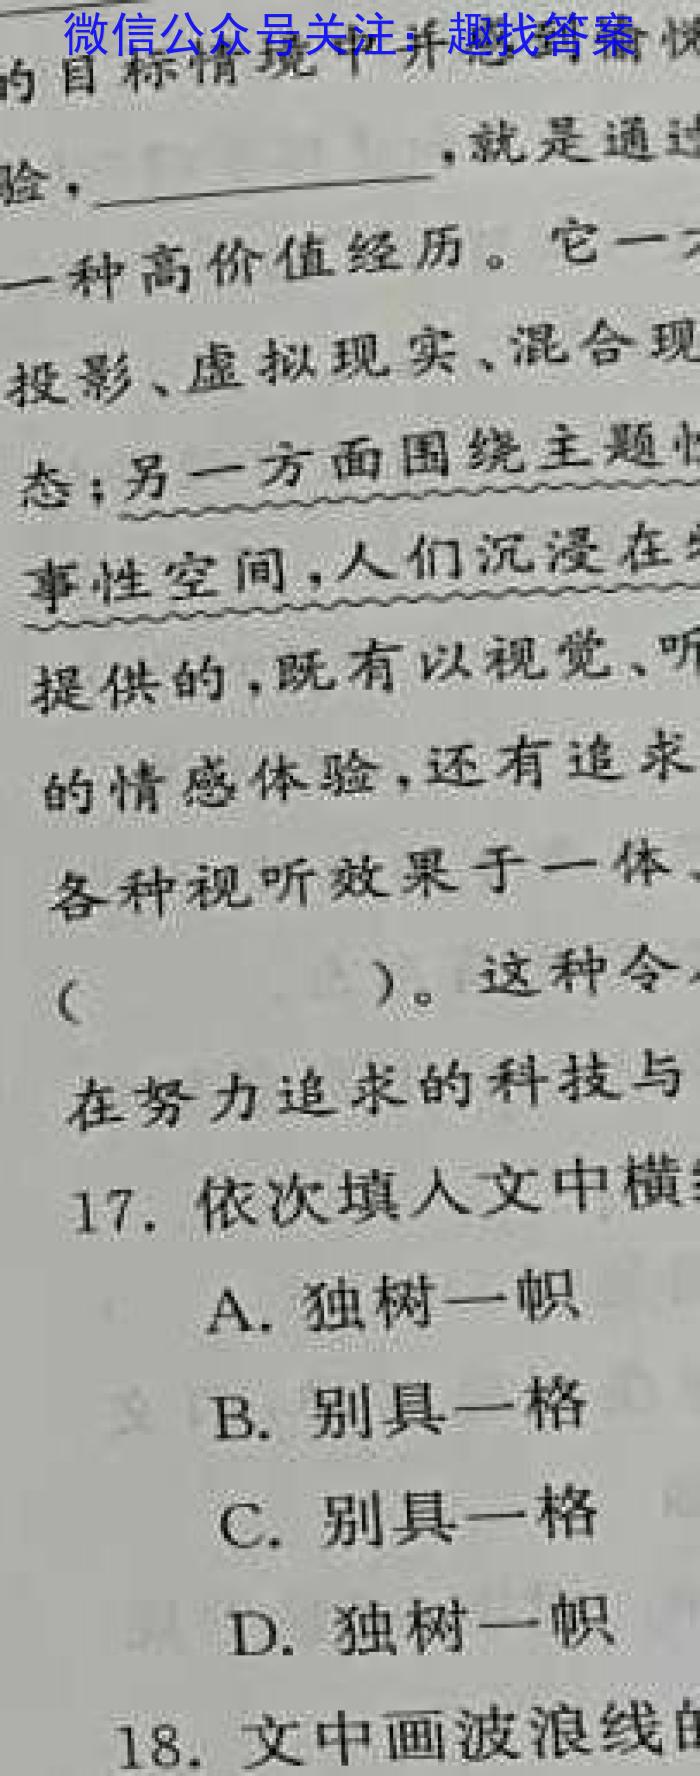 微信公众号关注：趣找答案
的目标情境中并
验，__________，就是通过
一种高价值经历。它一
投影、虚拟现实、混合现
态；另一方面围绕主题性
事性空间，人们沉浸在
提供的，既有以视觉、听
的情感体验，还有追求
各种视听效果于一体、
（ ）。这种令
在努力追求的科技与
17. 依次填入文中横
A. 独树一帜
B. 别具一格
C. 别具一格
D. 独树一帜
18. 文中画波浪线的